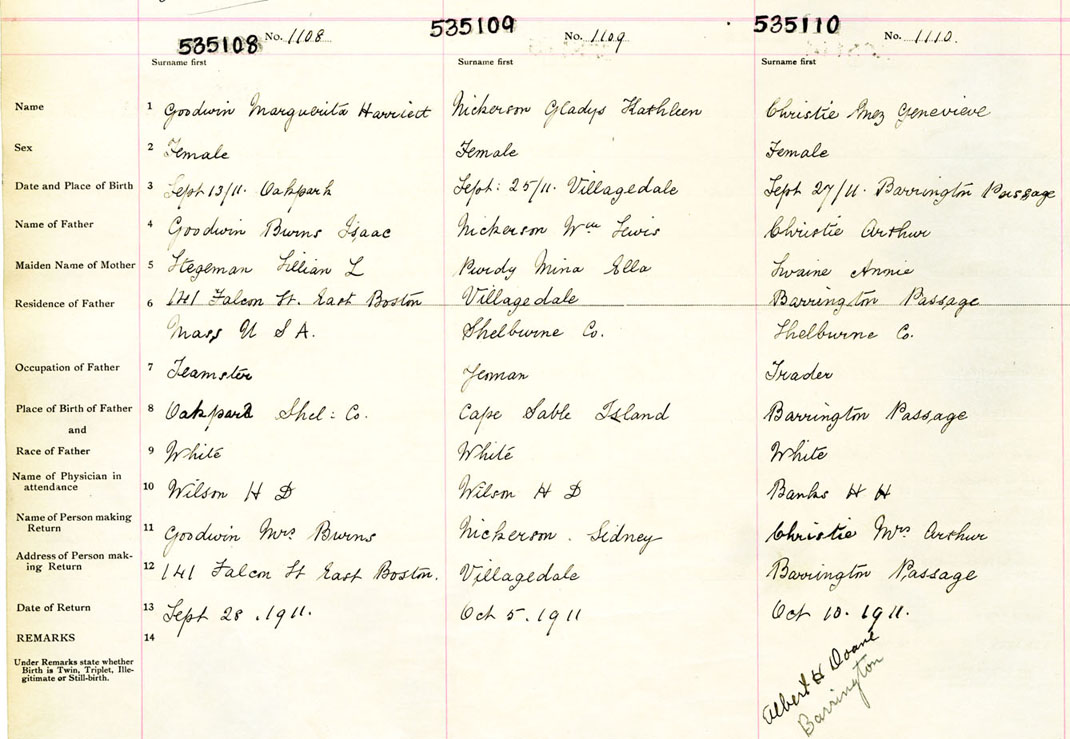 535108 No. 1108 535109 No. 1109 535110 No. 1110.
Surname first Surname first Surname first
Name 1 Goodwin Marguerita Harriett Nickerson Gladys Kathleen Christie Inez Genevieve
Sex 2 Female Female Female
Date and Place of Birth 3 Sept 13/11. Oakpark Sept: 25/11. Villagedale Sept 27/11. Barrington Passage
Name of Father 4 Goodwin Burns Isaac Nickerson Wm Lewis Christie Arthur
Maiden Name of Mother 5 Stegeman Lillian L Purdy Mina Ella Swaine Annie
Residence of Father 6 141 Falcon St. East Boston Villagedale Barrington Passage
Mass U S A. Shelburne Co. Shelburne Co.
Occupation of Father 7 Teamster Yeoman Trader
Place of Birth of Father 8 Oakpark Shel: Co. Cape Sable Island Barrington Passage
and
Race of Father 9 White White White
Name of Physician in
attendance 10 Wilson H D Wilson H D Banks H H
Name of Person making
Return 11 Goodwin Mrs Burns Nickerson. Sidney Christie Mrs Arthur
Address of Person mak-
ing Return 12 141 Falcon St East Boston. Villagedale Barrington Passage
Date of Return 13 Sept 28. 1911. Oct 5. 1911 Oct 10. 1911.
REMARKS 14
Under Remarks state whether
Birth is Twin, Triplet, Ille-
gitimate or Still-birth.
Albert H Doane
Barrington